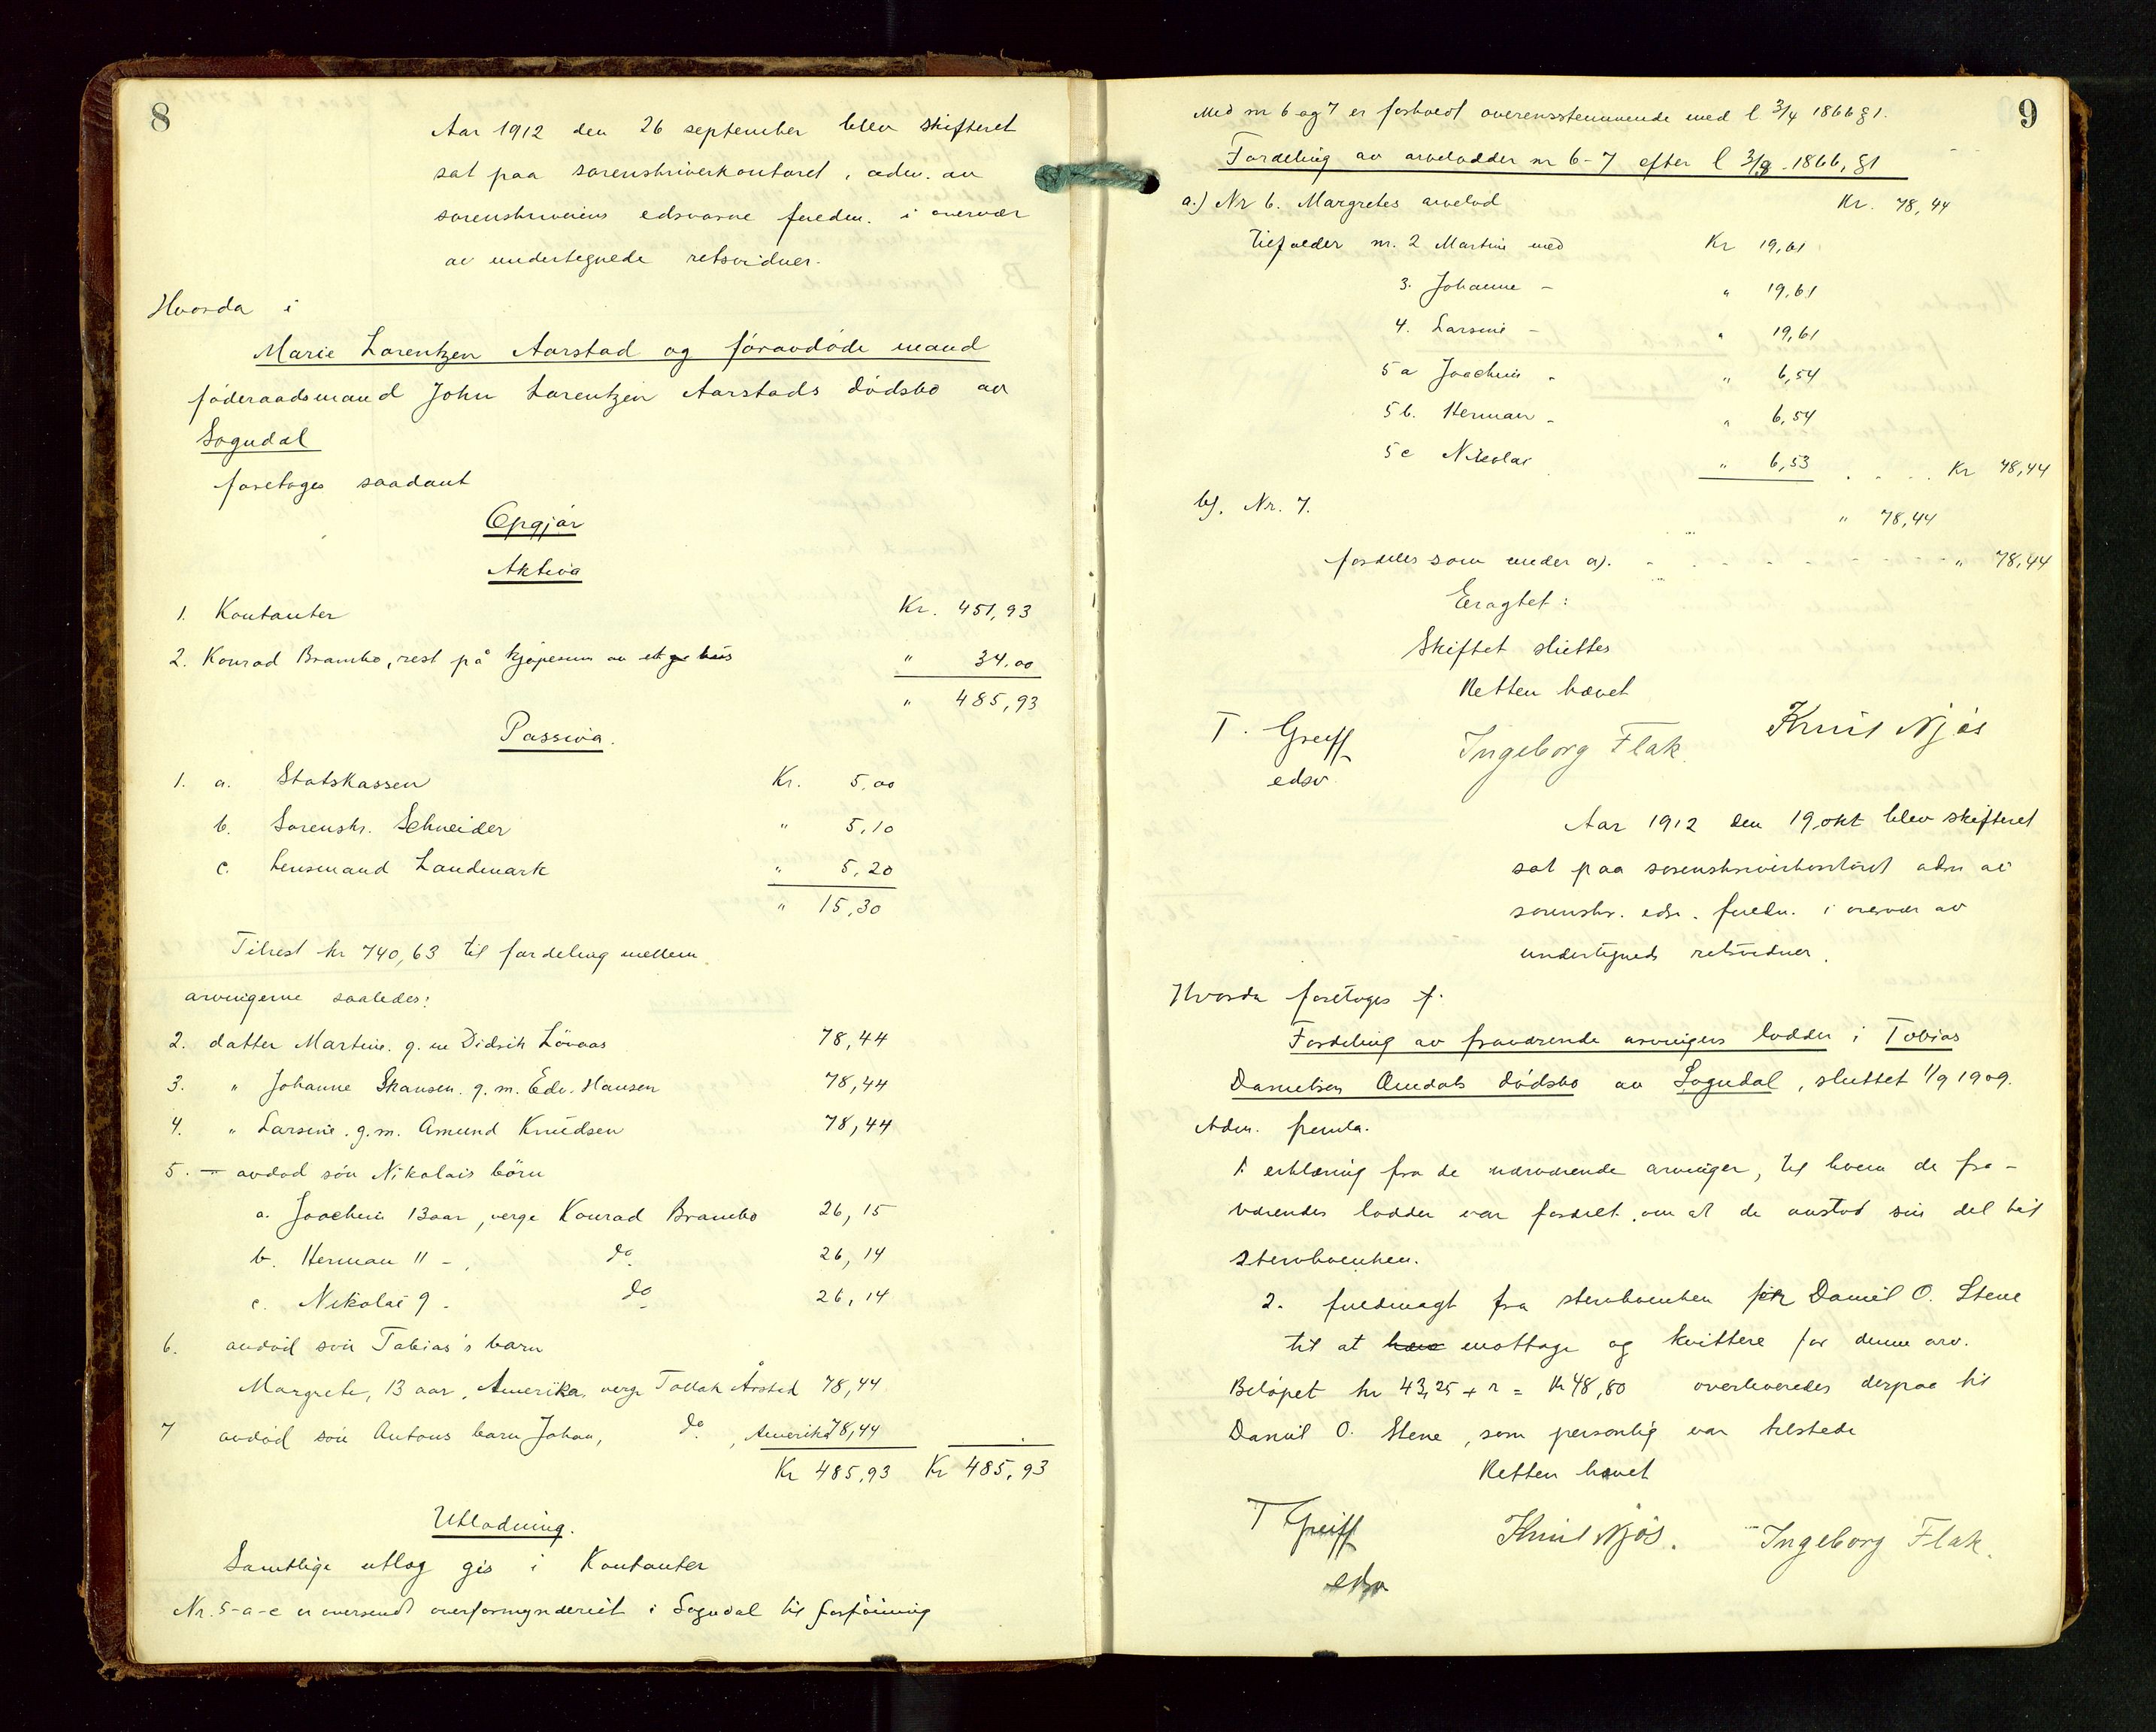 8
Aar 1912 den 26 september blev skifteret
sat paa sorenskriverkontoret, adm. av
sorenskriverens edsvorne fuldm. i overvær
av undertegnede retsvidner.
Hvorda i
Marie Lorentzen Aarstad og föravdöde mand
föderaadsmand John Lorentzen Aarstads dödsbo av
Sogndal
foretoges saadant
Opgjör
Aktiva
1. Kontanter Kr. 451,93
2. Konrad Brambo, rest på kjöpesum av hus " 34.00
" 485,93
Passiva.
1. a. Statskassen Kr. 5,00
b. Sorenskr. Schneider " 5,10
c. Lensmand Landmark " 5,20
" 15,30
Tilrest kr 740,63 til fordeling mellem
arvingerne saaledes:
2. datter Martine. g. m Didrik Lövaas 78,44
3. " Johanne Skansen. g. m. Edv. Hansen 78,44
4. " Larsine. g. m. Amund Knudsen 78,44
5. avdöd sön Nikolais börn
a. Joachim 13 aar, verge Konrad Brambo 26,15
b. Herman 11 - , do 26,14
c. Nikolai 9 - do 26,14
6. avdöd sön Tobias's barn
Margrete, 13 aar, Amerika, verge Tollak Årstad 78,44
7 avdöd sön Antons barn Johan, do, Amerika 78,44
Kr 485,93 Kr 485,93
Utlodning.
Samtlige utlæg gis i Kontanter
Nr. 5-a-c er oversendt overformynderiet i Sogndal til forföining
9
Med nr 6 og 7 er forholdt overensstemmende med l 3/4 1866 § 1.
Fordeling av arvelodder nr 6-7 efter l 3/4 1866, § 1
a.) Nr 6. Margretes arvelod Kr. 78,44
tilfalder nr. 2 Martine med Kr 19,61
3. Johanne - " 19,61
4. Larsine - " 19,61
5 a Joachim - " 6,54
5 b. Herman - " 6,54
5 c Nikolai " 6,53 . . . . Kr 78,44
b). Nr. 7. " 78,44
fordeles som under a). - - - - - - " 78,44
Eragtet:
Skiftet sluttes
Retten hævet
T. Greiff Ingeborg Flak. Knut Njös
edsv.
Aar 1912 den 19. okt blev skifteret
sat paa sorenskriverkontoret adm av
sorenskr. edsv. fuldm. i overvær av
undertegnede retsvidner.
Hvorda foretoges f.
Fordeling av fraværende arvingers lodder i Tobias
Danielsen Omdals dödsbo av Sogndal, sluttet 1/9 1909.
Adm. freml.
1. erklæring fra de nærværende arvinger, til hvem de fra-
værendes lodder var fordelt, om at de avstod sin del til
stervboenken.
2. fuldmagt fra stervboenken for Daniel O. Stene
til at hæve mottage og kvittere for denne arv.
Belöpet kr 43,25 + r = kr 48,80 overleveredes derpaa til
Daniel O. Stene, som personlig var tilstede
Retten hævet
T Greiff Knut Njös. Ingeborg Flak.
edsv